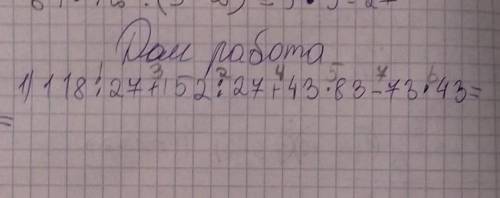 Дом работа
1) 118:27+152:27+43·83-73·43=
=